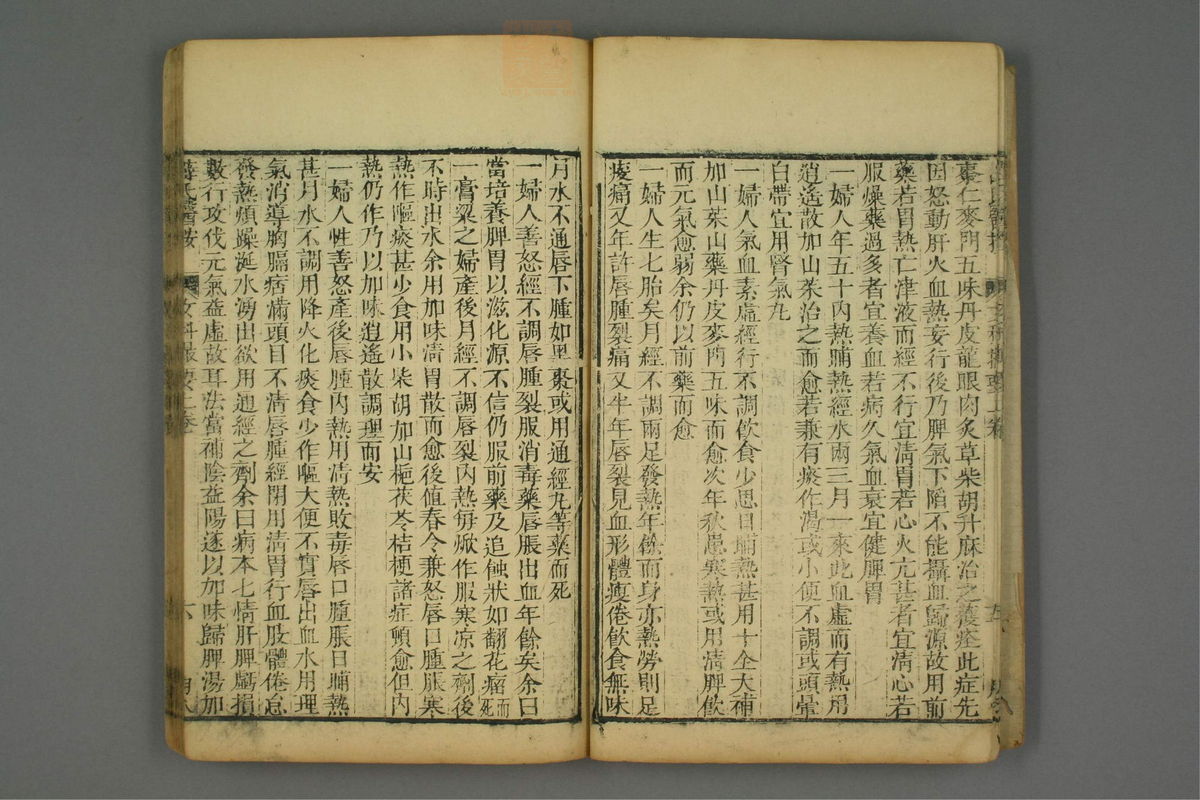 棗仁麥門五味丹皮龍眼肉炙草柴胡升麻治之獲痊此症先
因怒動肝火血熱妄行後乃脾氣下陷不能攝血歸源故用前
藥若胃熱亡津液而經不行宜清胃若心火亢甚者宜清心若
服燥藥過多者宜養血若病久氣血衰宜健脾胃
一婦人年五十內熱晡熱經水兩三月一來此血虛而有熱用
逍遙散加山茱治之而愈若兼有痰作渴或小便不調或頭暈
白帶宜用腎氣丸
一婦人氣血素虛經行不調飲食少思日晡熱甚用十全大補
加山茱山藥丹皮麥門五味而愈次年秋患寒熱或用清脾飲
而元氣愈弱余仍以前藥而愈
一婦人生七胎矣月經不調兩足發熱年餘而身亦熱勞則足
痠痛又年許唇腫裂痛又半年唇裂見血形體瘦倦飲食無味
月水不通唇下腫如黑棗或用通經丸等藥而死
一婦人善怒經不調唇腫裂服消毒藥唇脹出血年餘矣余曰
當培養脾胃以滋化源不信仍服前藥及追蝕狀如翻花瘤而死
一膏粱之婦產後月經不調唇裂內熱每焮作服寒凉之劑後
不時出水余用加味清胃散而愈後值春令兼怒唇口腫脹寒
熱作嘔痰甚少食用小柴胡加山梔茯苓桔梗諸症頓愈但內
熱仍作乃以加味逍遙散調理而安
一婦人性善怒產後唇腫內熱用清熱敗毒唇口腫脹日晡熱
甚月水不調用降火化痰食少作嘔大便不實唇出血水用理
氣消導胸膈痞滿頭目不清唇腫經閉用清胃行血肢體倦怠
發熱煩躁涎水湧出欲用通經之劑余曰病本七情肝脾虧損
數行攻伐元氣益虛故耳法當補陰益陽遂以加味歸脾湯加
薛氏醫按